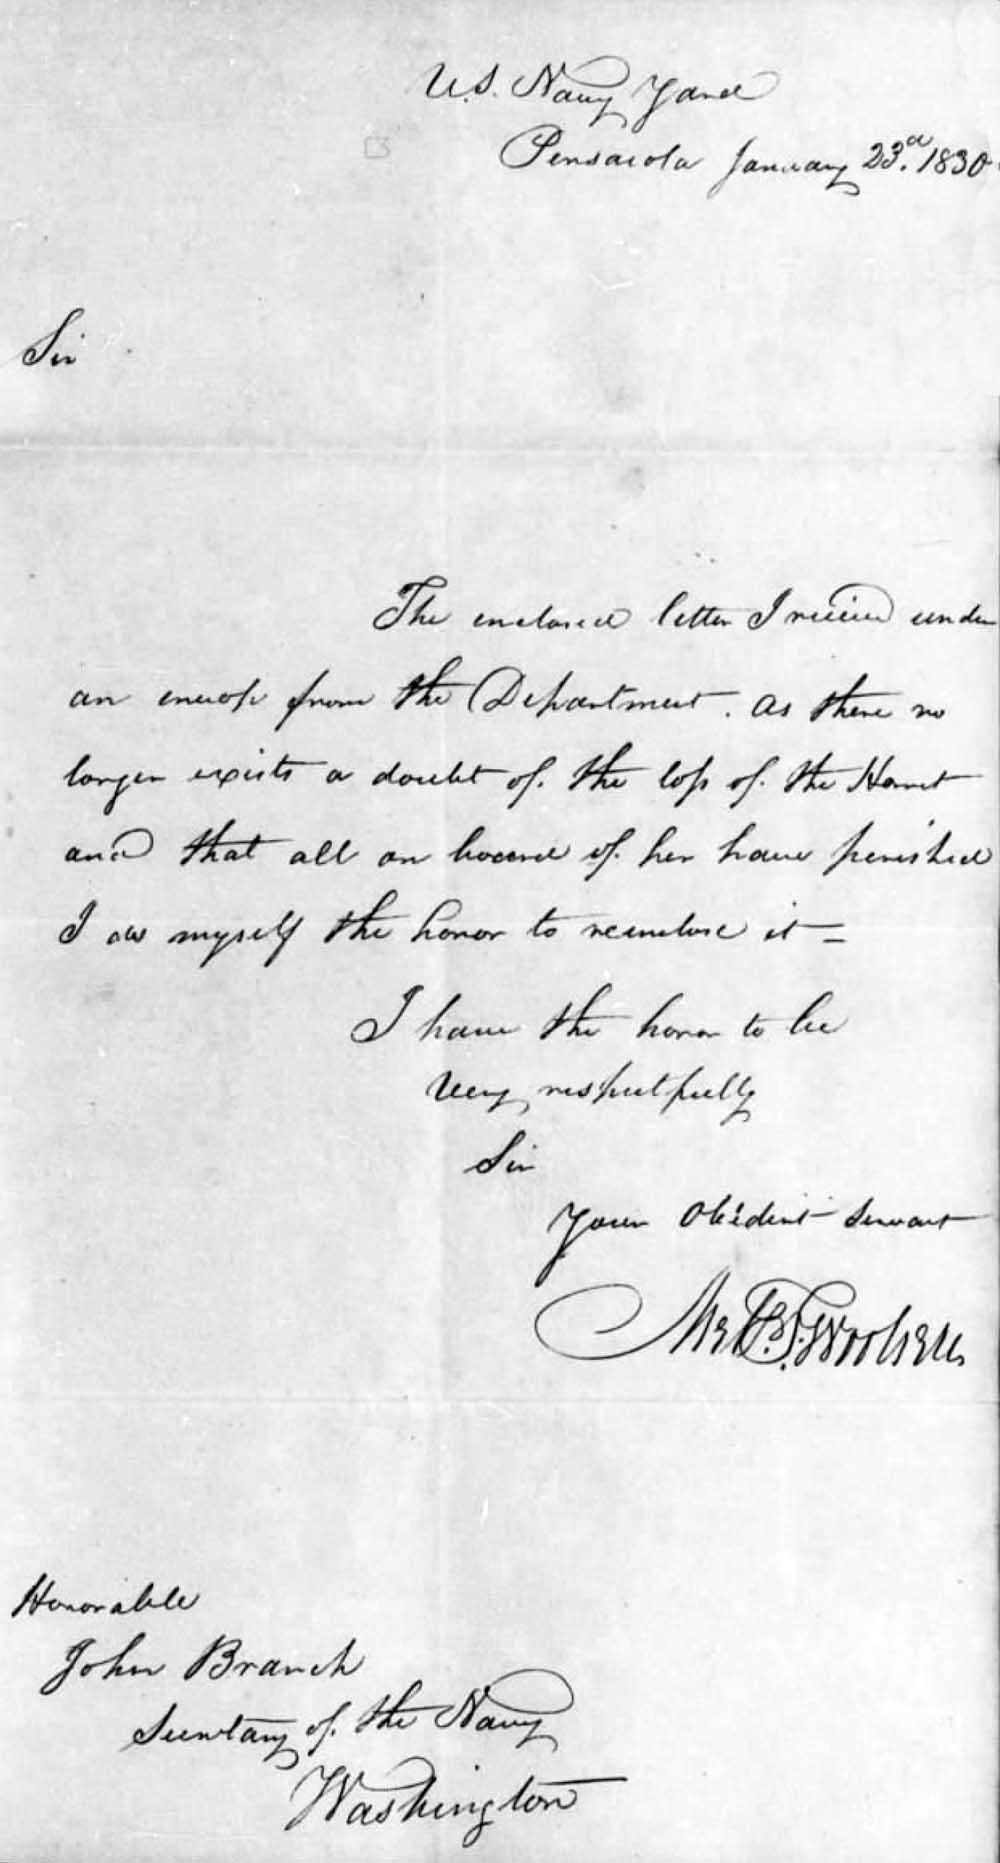 U.S. Navy Yard
Pensacola January 23.d 1830
Sir
The enclosed letter I received under
an envelope from the Department. As there no
longer exists a doubt of the loss of the Hornet
and that all on board of her have perished
I do myself the honor to reenclose it =
I have the honor to be
Very respectfully
Sir
Your Obedient Servant
Mel. T. Woolsey
Honorable
John Branch
Secretary of the Navy
Washington